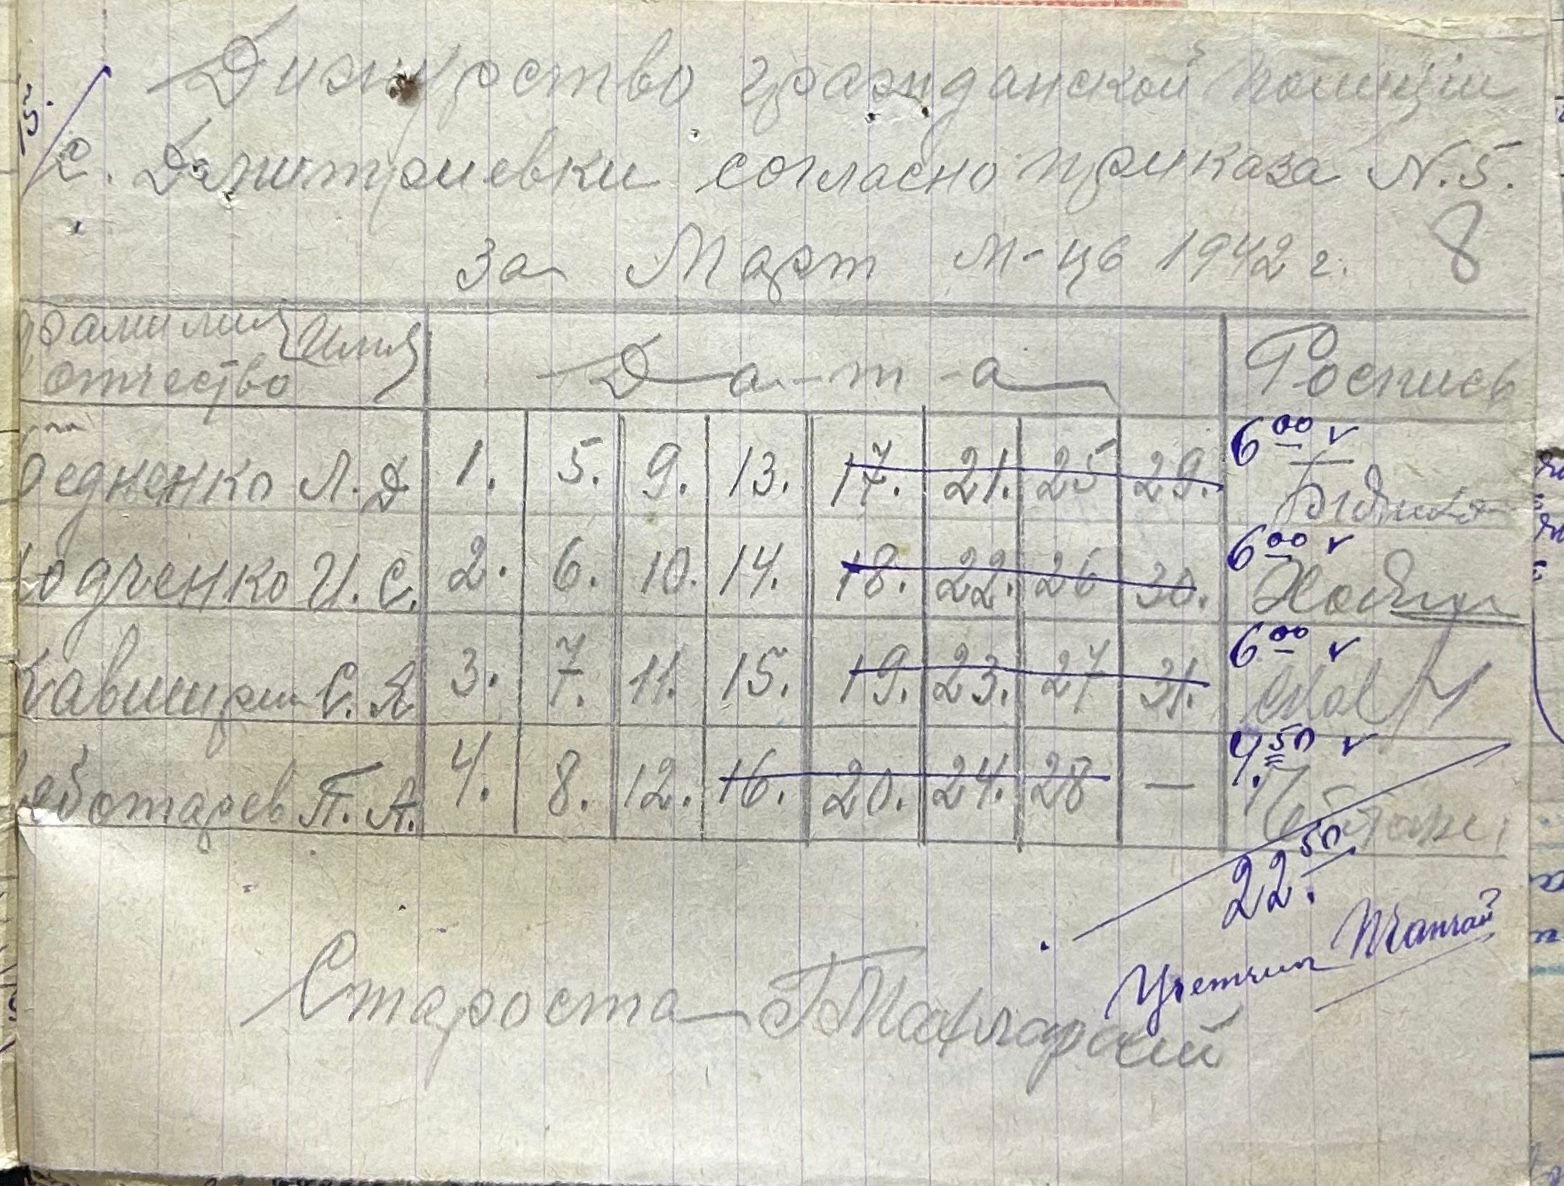 Дижурство гражданской полиции
с. Дмитриевки согласно приказа N. 5.
за Март м-цв 1942 г. 8
Фамилия Имя Отчество Д-а-т-а Роспись
Бедненко Л. Д 1. 5. 9. 13. 17. 21. 25 29. 6 00
Ходченко И. С. 2. 6. 10. 14. 18. 22. 26 30. 6 00
С. Я 3. 7. 11. 15. 19. 23. 27 31. 6 00
Чеботарев П. А. 4. 8. 12. 16. 20. 24. 28 — 4. 50
22. 50
Учетчик
Староста